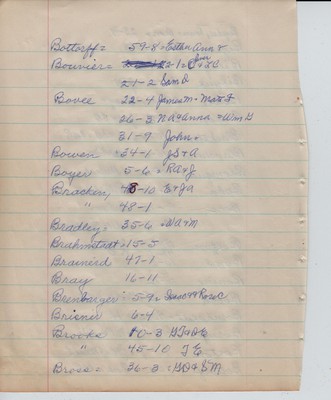 Bottorff = 59-8 = Esther Ann &
Bouvier = 22-1 = & L C
21-2 Sam D
Bovee 22-4 James M = Matt F
26-3 N A & Anna = Wm G
31-7 John =
Bowen 34-1 J S & A
Boyer 5-6 = R A & J
Bracken, 48-10 B & Ja
" 48-1
Bradley = 35-6 = W A & M
Brahmstedt = 15-5
Brainerd 47-1
Bray 16-11
Brenbarger 5-9 = Isaac & Rose C
Brisner 6-4
Brooks 10-3 G T & O E
" 45-10 J E
Bross = 36-3 : G O & S M